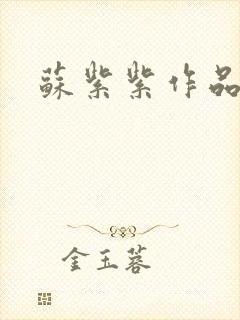 蘇紫紫作品
金玉蓉